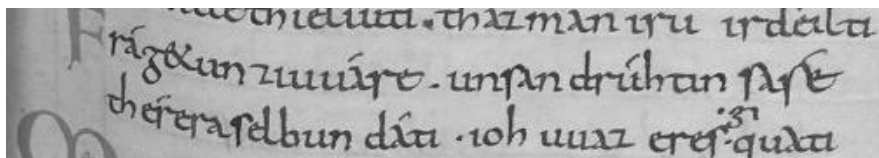 thieliuti . thaz man iru irdeilti
Frág&un ziuuáre . unsan drúhtin sárse
thérera selbun dáti . ioh uuaz eres quati